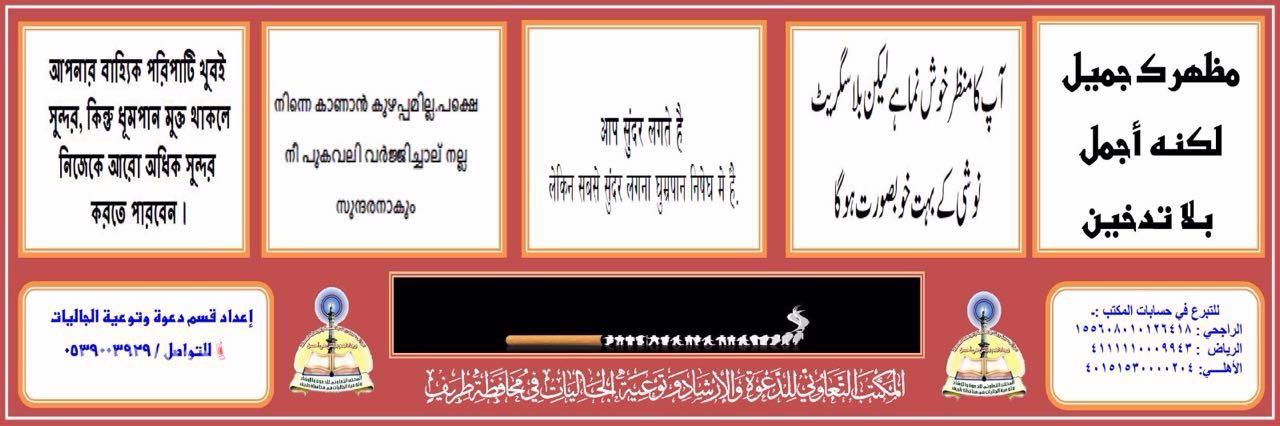 আপনার বাহ্যিক পরিপাটি খুবই
সুন্দর, কিন্তু ধূমপান মুক্ত থাকলে
নিজেকে আরো অধিক সুন্দর
করতে পারবেন।
നിന്നെ കാണാൻ കുഴപ്പമില്ല.പക്ഷെ
നീ പുകവലി വർജ്ജിച്ചാല് നല്ല
സുന്ദരനാകും
आप सुंदर लगते है
लेकिन सबसे सुंदर लगना धुम्रपान निषेघ मे है.
آپ کا منظر خوش نما ہے لیکن بلا سگریٹ
نوشی کے بہت خوبصورت ہوگا
مظهرك جميل
لكنه أجمل
بلا تدخين
إعداد قسم دعوة وتوعية الجاليات
للتواصل / ٠٥٣٩٠٠٣٩٢٩
المكتب التعاوني للدعوة والإرشاد وتوعية الجاليات في محافظة طريف
للتبرع في حسابات المكتب :ـ
الراجحي : ١٥٥٦٠٨٠١٠١٢٦٤١٨
الرياض : ٤١١١١١٠٠٠٩٩٤٣
الأهلـــي: ٤٠١٥١٥٣٠٠٠٠٢٠٤